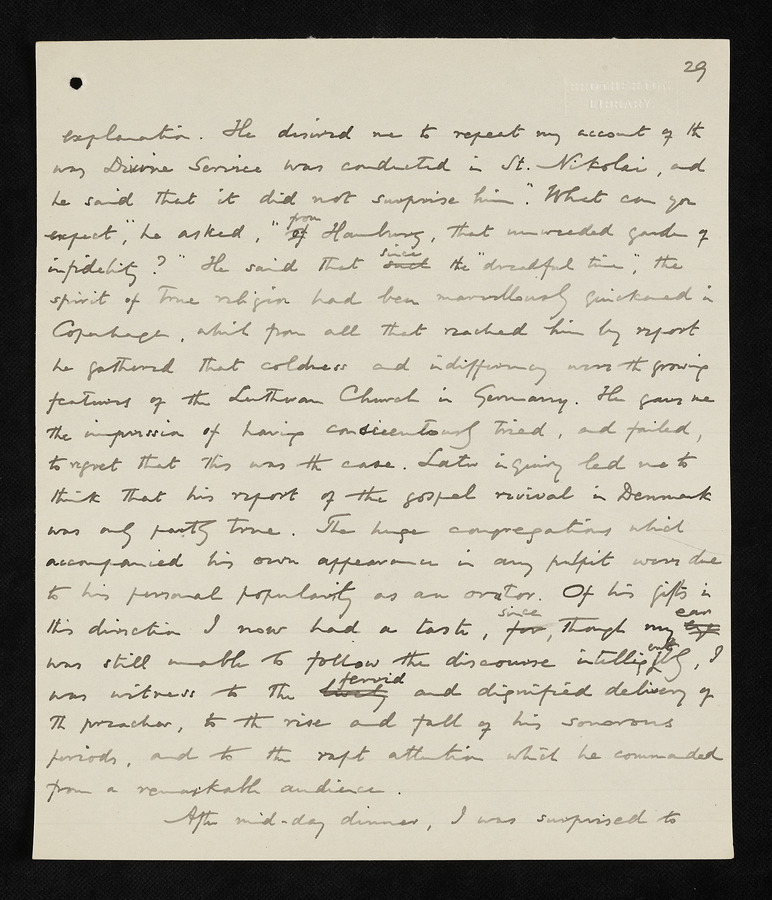 29
BROTHERTON
LIBRARY
explanation. He desired me to repeat my account of the
way Divine Service was conducted in St. Nikolai, and
he said that it did not surprise him. "What can you
expect", he asked, "of from Hamburg, that unweeded garden of
infidelity?" He said that such since the "dreadful time", the
spirit of true religion had been marvellously quickened in
Copenhagen, whilst from all that reached him by report
he gathered that coldness and indifferency were the growing
features of the Lutheran Church in Germany. He gave me
the impression of having conscientiously tried, and failed,
to regret that this was the case. Later inquiry led me to
think that his report of the gospel revival in Denmark
was only partly true. The huge congregations which
accompanied his own appearance in any pulpit were due
to his personal popularity as an orator. Of his gifts in
this direction I now had a taste, for, since though my ear
was still unable to follow the discourse intelligently, I
was witness to the lively fervid and dignified delivery of
the preacher, to the rise and fall of his sonorous
periods, and to the rapt attention which he commanded
from a remarkable audience.
After mid-day dinner, I was surprised to